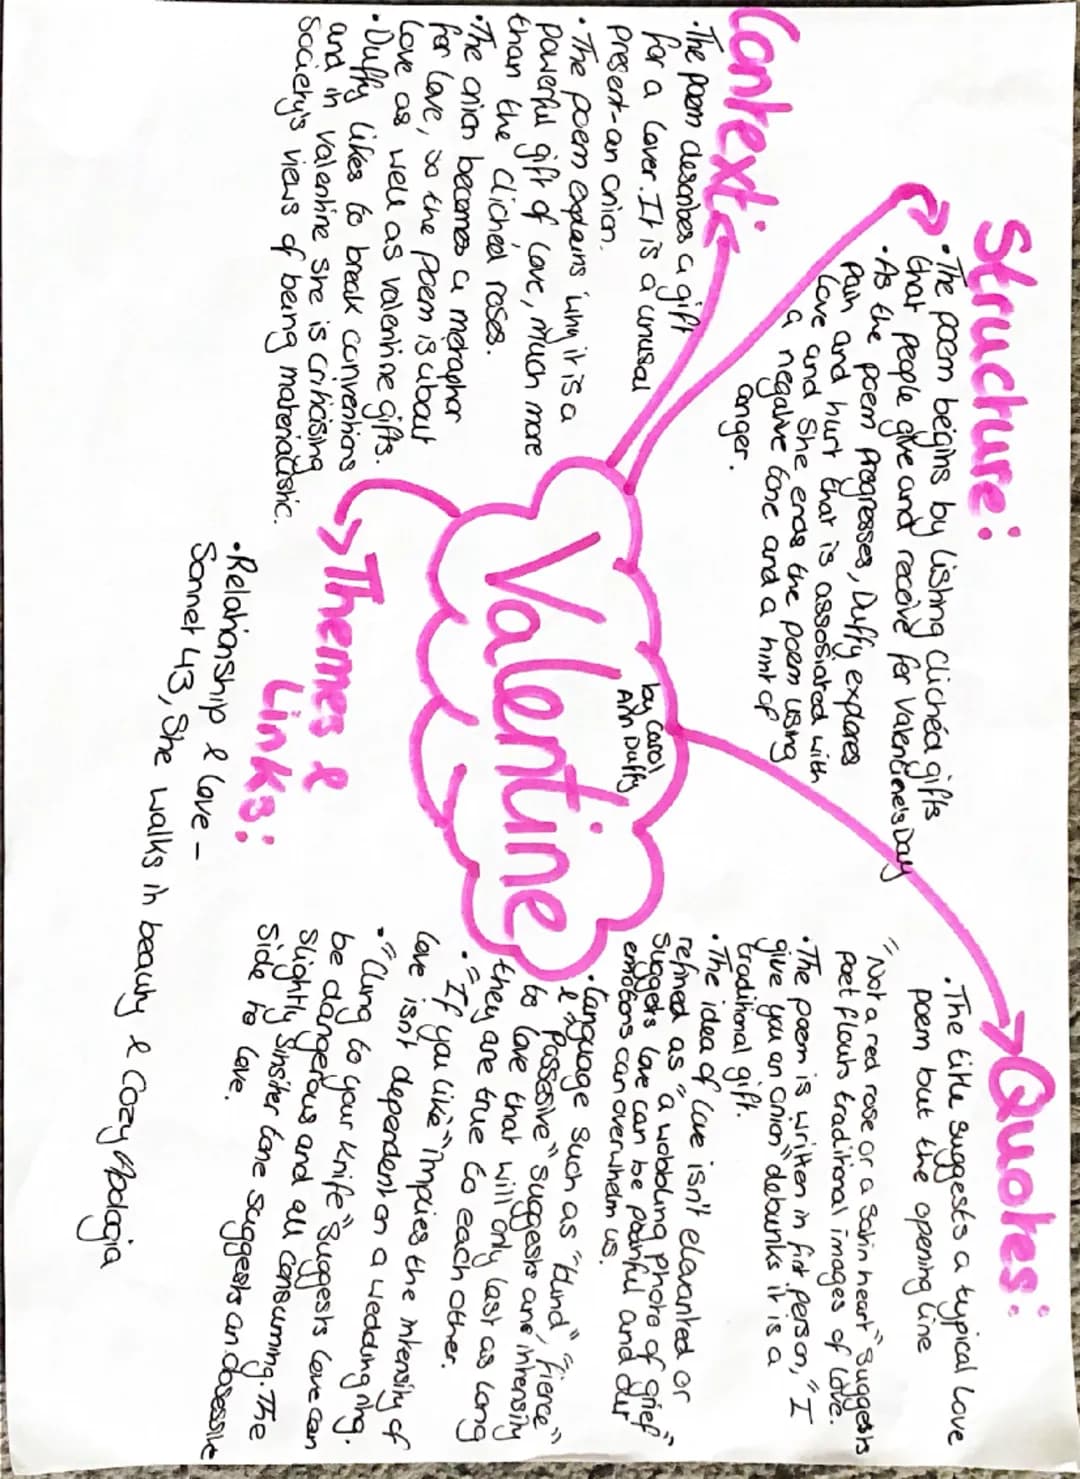 Valentine
by Carol
Ann Duffy
Structure:
• The poem begins by listing clichéd gifts
that people give and receive for Valentine's Day
• As the poem progresses, Duffy explores
pain and hurt that is assosiated with
love and she ends the poem using
a negative tone and a hint of
anger.
Context:
• The poem describes a gift
for a lover. It is a unusal
present - an onion.
• The poem explains why it is a
powerful gift of love, much more
than the clichéd roses.
• The onion becomes a metaphor
for love, so the poem is about
love as well as valentine gifts.
• Duffy likes to break conventions
and in valentine she is criticising
society's views of being materialistic.
Quotes:
• The title suggests a typical love
poem but the opening line
"Not a red rose or a satin heart" suggests
poet flouts traditional images of love.
• The poem is written in first person, "I
give you an onion" debunks it is a
traditional gift.
• The idea of love isn't elavanted or
refined as "a wobbling photo of grief"
suggets love can be painful and our
emotions can overwhelm us.
• Language such as "blind", "fierce"
& "possessive" suggests are intensity
to love that will only last as long
they are true to each other.
• "If you like" impies the intensity of
love isn't dependent on a wedding ring.
• "Cling to your knife" suggests love can
be dangerous and all consuming. The
slightly sinsiter tone suggests an obsessive
side to love.
Themes &
Links:
• Relationship & love -
Sonnet 43, She walks in beauty & Cozy Apologia